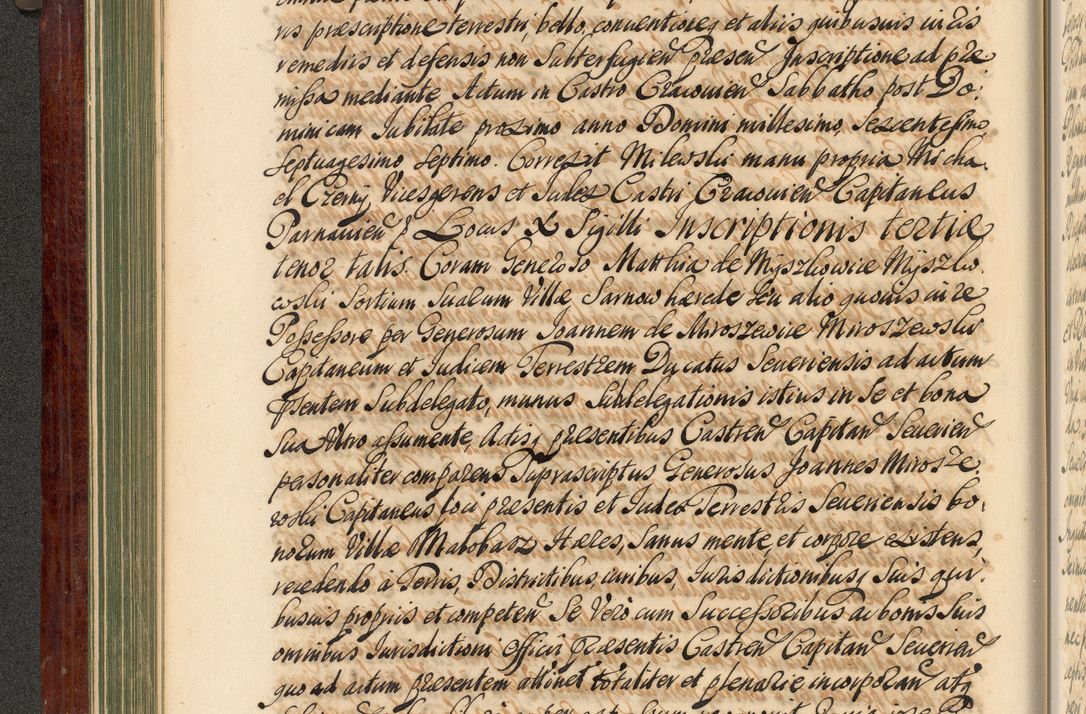 ris præscriptione terrestri, bello, conventione et aliis quibusuis iuris
remediis et defensis non Subterfugien̄ præsen̄ Inscriptione ad præ
missa mediante Actum in Castro Cracouien̄ Sabbatho post Do:
minicam Iubilate proximo anno Domini millesimo Sexcentesimo
Septuagesimo Septimo. Correxit Milewski manu propria Micha
el Czerny, Vicesgerens et Iudex Castri Cracouien̄ Capitaneus
Parnauien̄ Locus X Sigilli Inscriptionis tertiæ
tenor talis. Coram Generoso Matthia de Myszkowice Myszko
wski Sortium Suarum Villæ Sarnow hærede seu alio quouis iure
Possessore per Generosum Joannem de Miroszewice Miroszewski
Capitaneum et Iudicem Terrestrem Ducatus Seueriensis ad actum
præsentem Subdelegato, munus Subdelegationis istius in Se et bona
Sua Ultro assumente, Actisq præsentibus Castren̄ Capitan̄ Seuerien̄
personaliter comparens Suprascriptus Generosus Joannes Mirosze:
wski Capitaneus loci præsentis et Iudex Terrestris Seueriensis bo:
norum Villæ Małobądz Hæres, Sanus mente, et corpore existens,
recedendo à Terris, Districtibus, iuribus, Iurisdictionibusq Suis qui:
busuis propriis et competen̄ Se Verò cum Successoribus ac bonis Suis
omnibus Iurisdictioni Officii præsentis Castren̄ Capitan̄ Seuerien̄
quo ad actum præsentem attinet totaliter et plenarie incorporan̄ atq